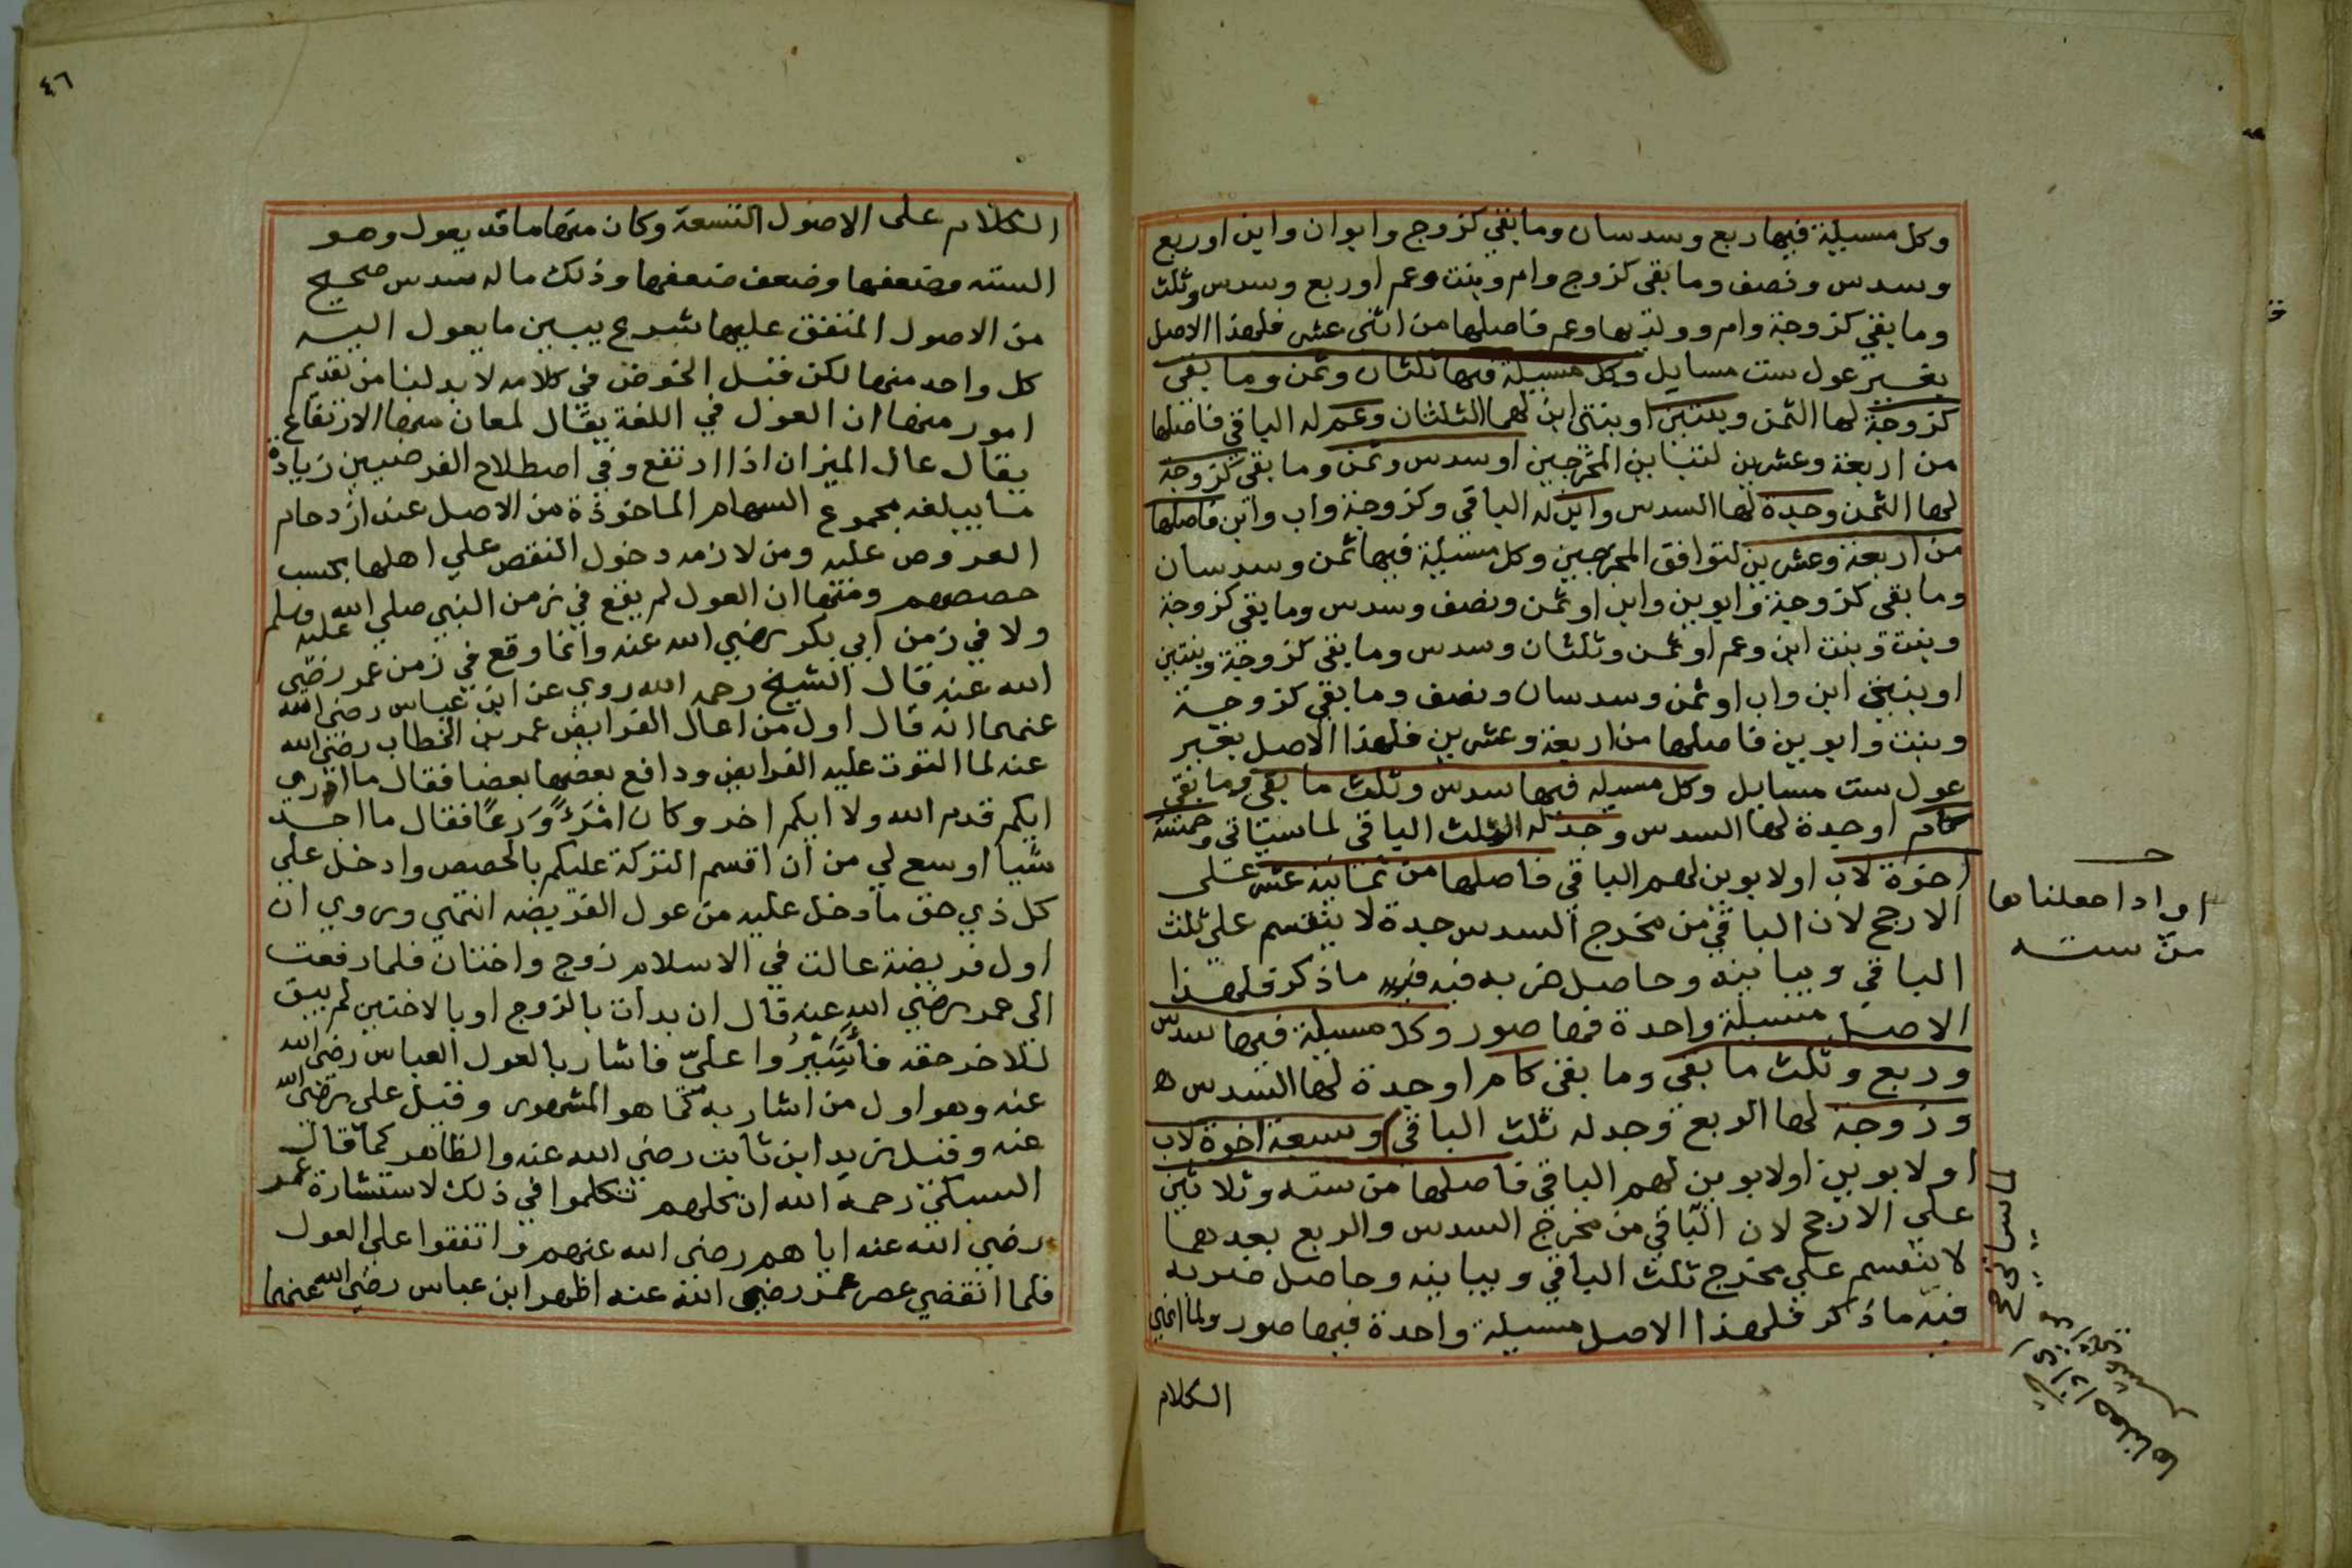 وكل مسيلة فيها ربع وسدسان وما بقي كزوج وابوان وابن اوربع
وسدس ونصف وما بقى كزوج وام وبنت وعم اوربع وسدس وثلث
وما بقي كزوجة وام وولديها وعم فاصلها من اثنى عشر فلهذا الاصل
بغير عول ست مسايل وكل مسيلة فيها ثلثان وثمن وما بقى
كزوجة لها الثمن وبنتين اوبنتى ابن لهما الثلثان وعم له الباقي فاصلها
من اربعة وعشرين لتباين المخرجين اوسدس وثمن وما بقى كزوجة
لها الثمن وجدة لها السدس وابن له الباقي وكزوجة واب وابن فاصلها
من اربعة وعشرين لتوافق المخرجين وكل مسيلة فيها ثمن وسدسان
وما بقى كزوجة وابوين وابن اوثمن ونصف وسدس وما بقى كزوجة
وبنت وبنت ابن وعم اوثمن وثلثان وسدس وما بقي كزوجة وبنتين
اوبنتي ابن واب اوثمن وسدسان ونصف وما بقي كزوجة
وبنت وابوين فاصلها من اربعة وعشرين فلهذا الاصل بغير
عول ست مسايل وكل مسيله فيها سدس وثلث ما بقى وما بقى
كام اوجدة لها السدس وجد له الثلث الباقي لما سياتي وخمسة
اخوة لاب اولابوين لهم الباقي فاصلها من ثمانية عشر على
الارجح لان الباقي من مخرج السدس جدة لا ينقسم على ثلث
الباقي ويباينه وحاصل ضربه فيه ما ذكر فلهذا
الاصل مسيلة واحدة فيها صور وكل مسيلة فيها سدس
وربع وثلث ما بقى وما بقى كام اوجدة لها السدس
وزوجة لها الربع وجد له ثلث الباقي وسبعة اخوة لاب
اولابوين اولابوين لهم الباقي فاصلها من سته وثلاثين
على الارجح لان الباقي من مخرج السدس والربع بعدهما
لا ينقسم على مخرج ثلث الباقي ويباينه وحاصل ضربه
فيه ما ذكر فلهذا الاصل مسيلة واحدة فيها صور ولما انهى
الكلام
او اذا جعلناها
من سته
٤٦
الكلام على الاصول التسعة وكان منها ما قد يعول وهو
السته وضعفها وضعف ضعفها وذلك ما له سدس صحيح
من الاصول المتفق عليها شرع يبين ما يعول اليه
كل واحد منها لكن قبل الخوض في كلامه لا بد لنا من تقديم
امور منها ان العول في اللغة يقال لمعان منها الارتفاع
يقال عال الميزان اذا ارتفع وفي اصطلاح الفرضيين زيادة
ما يبلغه مجموع السهام الماخوذة من الاصل عند ازدحام
الفروض عليه ومن لازمه دخول النقص علي اهلها بحسب
حصصهم ومنها ان العول لم يقع في زمن النبي صلي الله عليه وسلم
ولا في زمن ابي بكر رضي الله عنه وانما وقع في زمن عمر رضي
الله عنه قال الشيخ رحمه الله روي عن ابن عباس رضي الله
عنهما انه قال اول من اعال الفرايض عمر بن الخطاب رضي الله
عنه لما التوت عليه الفرايض ودافع بعضها بعضا فقال ما ادري
ايكم قدم الله ولا ايكم اخر وكان امْرَءً وَرَعًا فقال ما اجد
شيا اوسع لي من ان اقسم التركة عليكم بالحصص وادخل علي
كل ذي حق ما دخل عليه من عول الفريضه انتهي وروي ان
اول فريضة عالت في الاسلام زوج واختان فلما رفعت
الى عمر رضي الله عنه قال ان بدات بالزوج اوبالاختين لم يبق
للاخر حقه فأشيرُوا عليّ فاشار بالعول العباس رضي الله
عنه وهو اول من اشار به كما هو المشهور وقيل علي رضي الله
عنه وقيل زيد ابن ثابت رضي الله عنه والظاهر كما قال
السبكي رحمه الله ان كلهم تكلموا في ذلك لاستشارة عمر
رضي الله عنه اياهم رضي الله عنهم واتفقوا على العول
فلما انقضي عصر عمر رضي الله عنه اظهر ابن عباس رضي الله عنهما